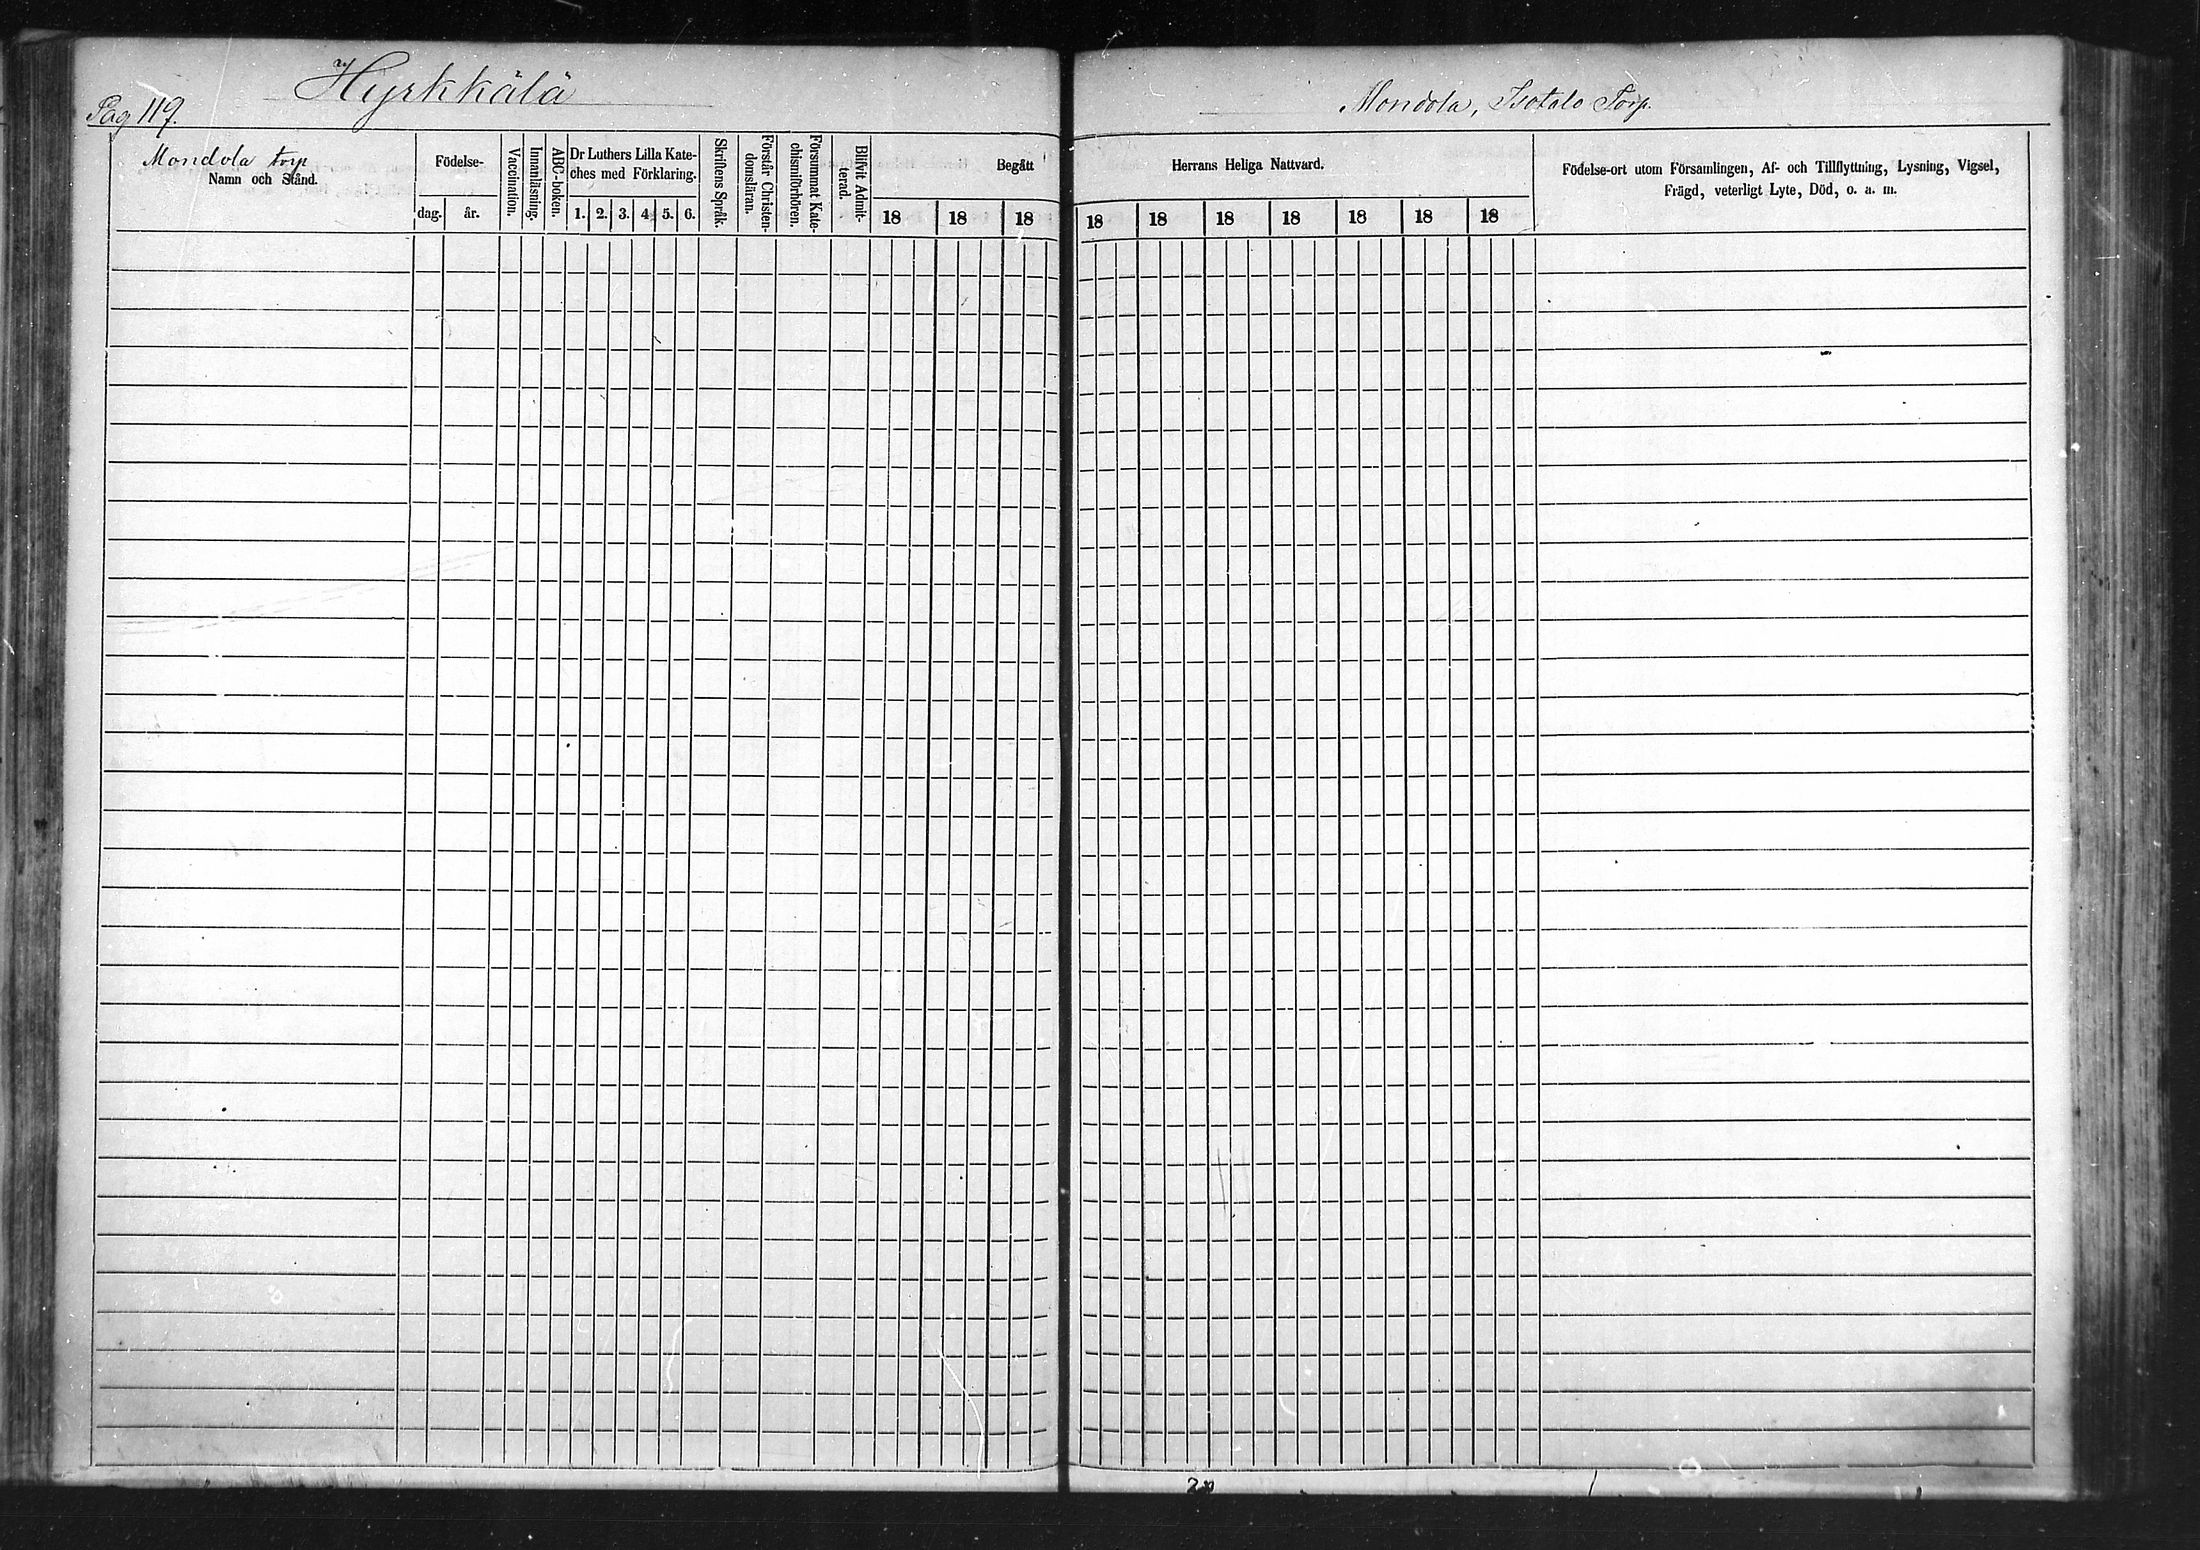 Hyrkkälä
Pag 119.
Mondola, Isotalo Torp.
Mondola torp
Namn och Stånd.
Födelse-
dag.
år.
Vaccination.
Innanläsning.
ABC-boken.
Dr Luthers Lilla Kate-
ches med Förklaring.
1. 2. 3. 4. 5. 6.
Skriftens Språk.
Förstår Christen-
domsläran.
Försummat Kate-
chismiförhören.
Blifvit Admit-
terad.
Begått
18 18 18
Herrans Heliga Nattvard.
18 18 18 18 18 18 18
Födelse-ort utom Församlingen, Af- och Tillflyttning, Lysning, Vigsel,
Frägd, veterligt Lyte, Död, o. a. m.